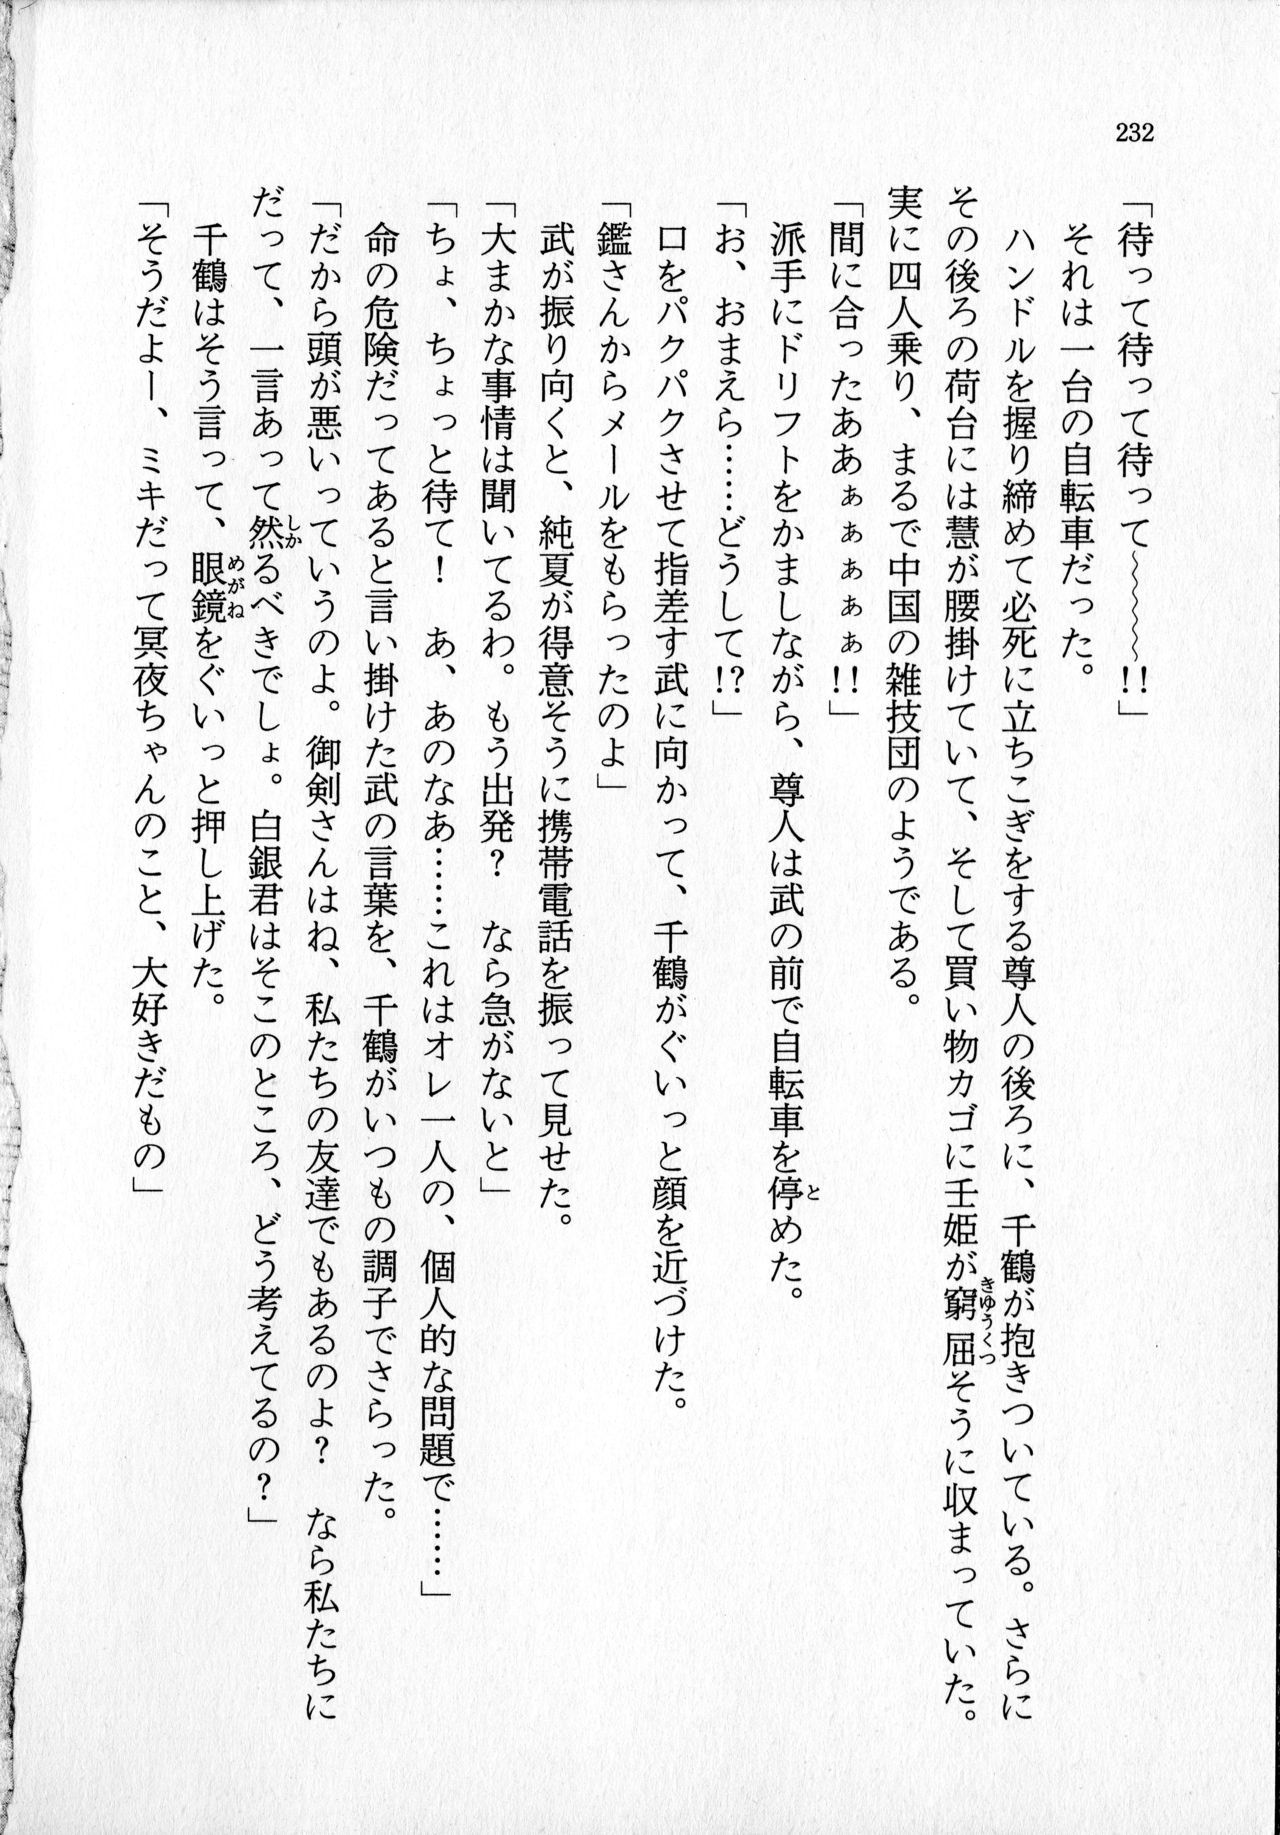 232
「待って待って待って～～～～!!」
それは一台の自転車だった。
ハンドルを握り締めて必死に立ちこぎをする尊人の後ろに、千鶴が抱きついている。さらに
その後ろの荷台には慧が腰掛けていて、そして買い物カゴに壬姫が窮屈そうに収まっていた。
実に四人乗り、まるで中国の雑技団のようである。
「間に合ったああぁぁぁぁぁ!!」
派手にドリフトをかましながら、尊人は武の前で自転車を停めた。
「お、おまえら……どうして!?」
口をパクパクさせて指差す武に向かって、千鶴がぐいっと顔を近づけた。
「鑑さんからメールをもらったのよ」
武が振り向くと、純夏が得意そうに携帯電話を振って見せた。
「大まかな事情は聞いてるわ。もう出発？　なら急がないと」
「ちょ、ちょっと待て！　あ、あのなあ……これはオレ一人の、個人的な問題で……」
命の危険だってあると言い掛けた武の言葉を、千鶴がいつもの調子でさらった。
「だから頭が悪いっていうのよ。御剣さんはね、私たちの友達でもあるのよ？　なら私たちに
だって、一言あって然るべきでしょ。白銀君はそこのところ、どう考えてるの？」
千鶴はそう言って、眼鏡をぐいっと押し上げた。
「そうだよー、ミキだって冥夜ちゃんのこと、大好きだもの」